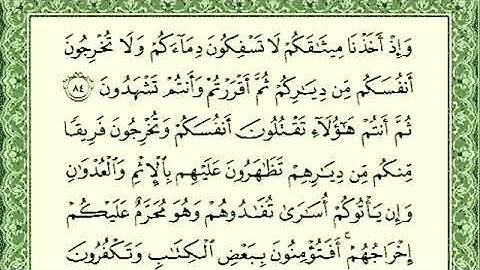 وَإِذْ أَخَذْنَا مِيثَـٰقَكُمْ لَا تَسْفِكُونَ دِمَآءَكُمْ وَلَا تُخْرِجُونَ
أَنفُسَكُم مِّن دِيَـٰرِكُمْ ثُمَّ أَقْرَرْتُمْ وَأَنتُمْ تَشْهَدُونَ ٨٤
ثُمَّ أَنتُمْ هَـٰٓؤُلَآءِ تَقْتُلُونَ أَنفُسَكُمْ وَتُخْرِجُونَ فَرِيقًا
مِّنكُم مِّن دِيَـٰرِهِمْ تَظَـٰهَرُونَ عَلَيْهِم بِٱلْإِثْمِ وَٱلْعُدْوَٰنِ
وَإِن يَأْتُوكُمْ أُسَـٰرَىٰ تُفَـٰدُوهُمْ وَهُوَ مُحَرَّمٌ عَلَيْكُمْ
إِخْرَاجُهُمْ ۚ أَفَتُؤْمِنُونَ بِبَعْضِ ٱلْكِتَـٰبِ وَتَكْفُرُونَ